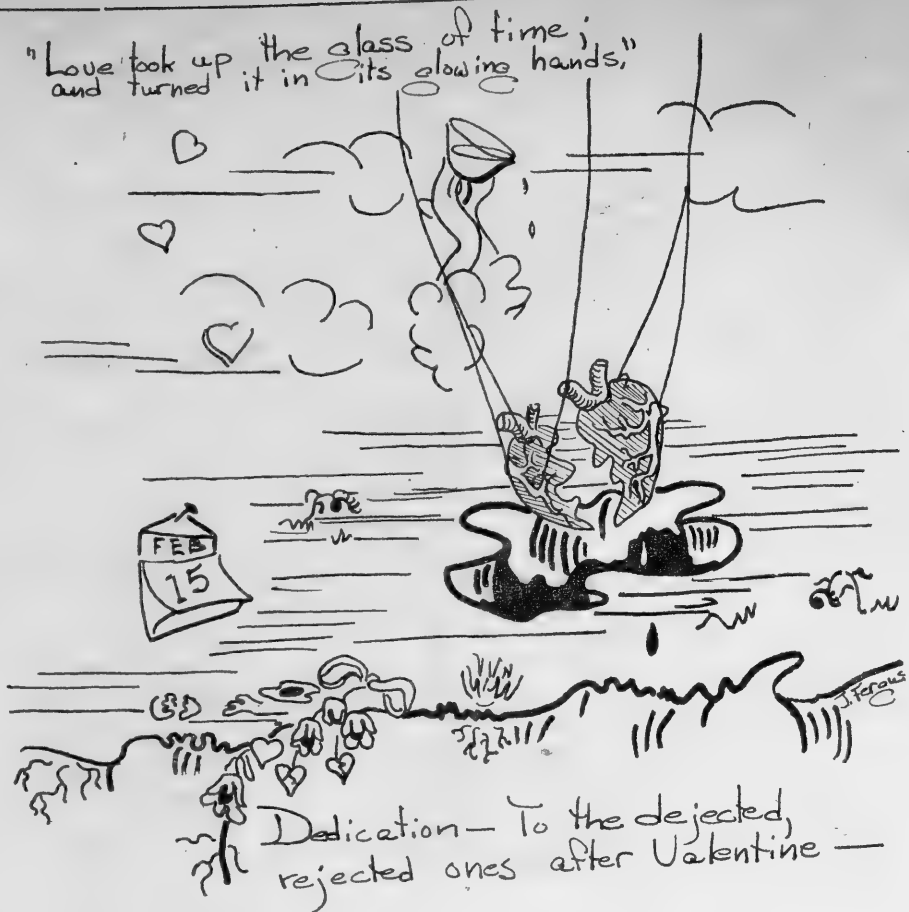 "Love took up the glass of time;
and turned it in its glowing hands."
FEB
15
J. Fergus
Dedication— To the dejected,
rejected ones after Valentine —